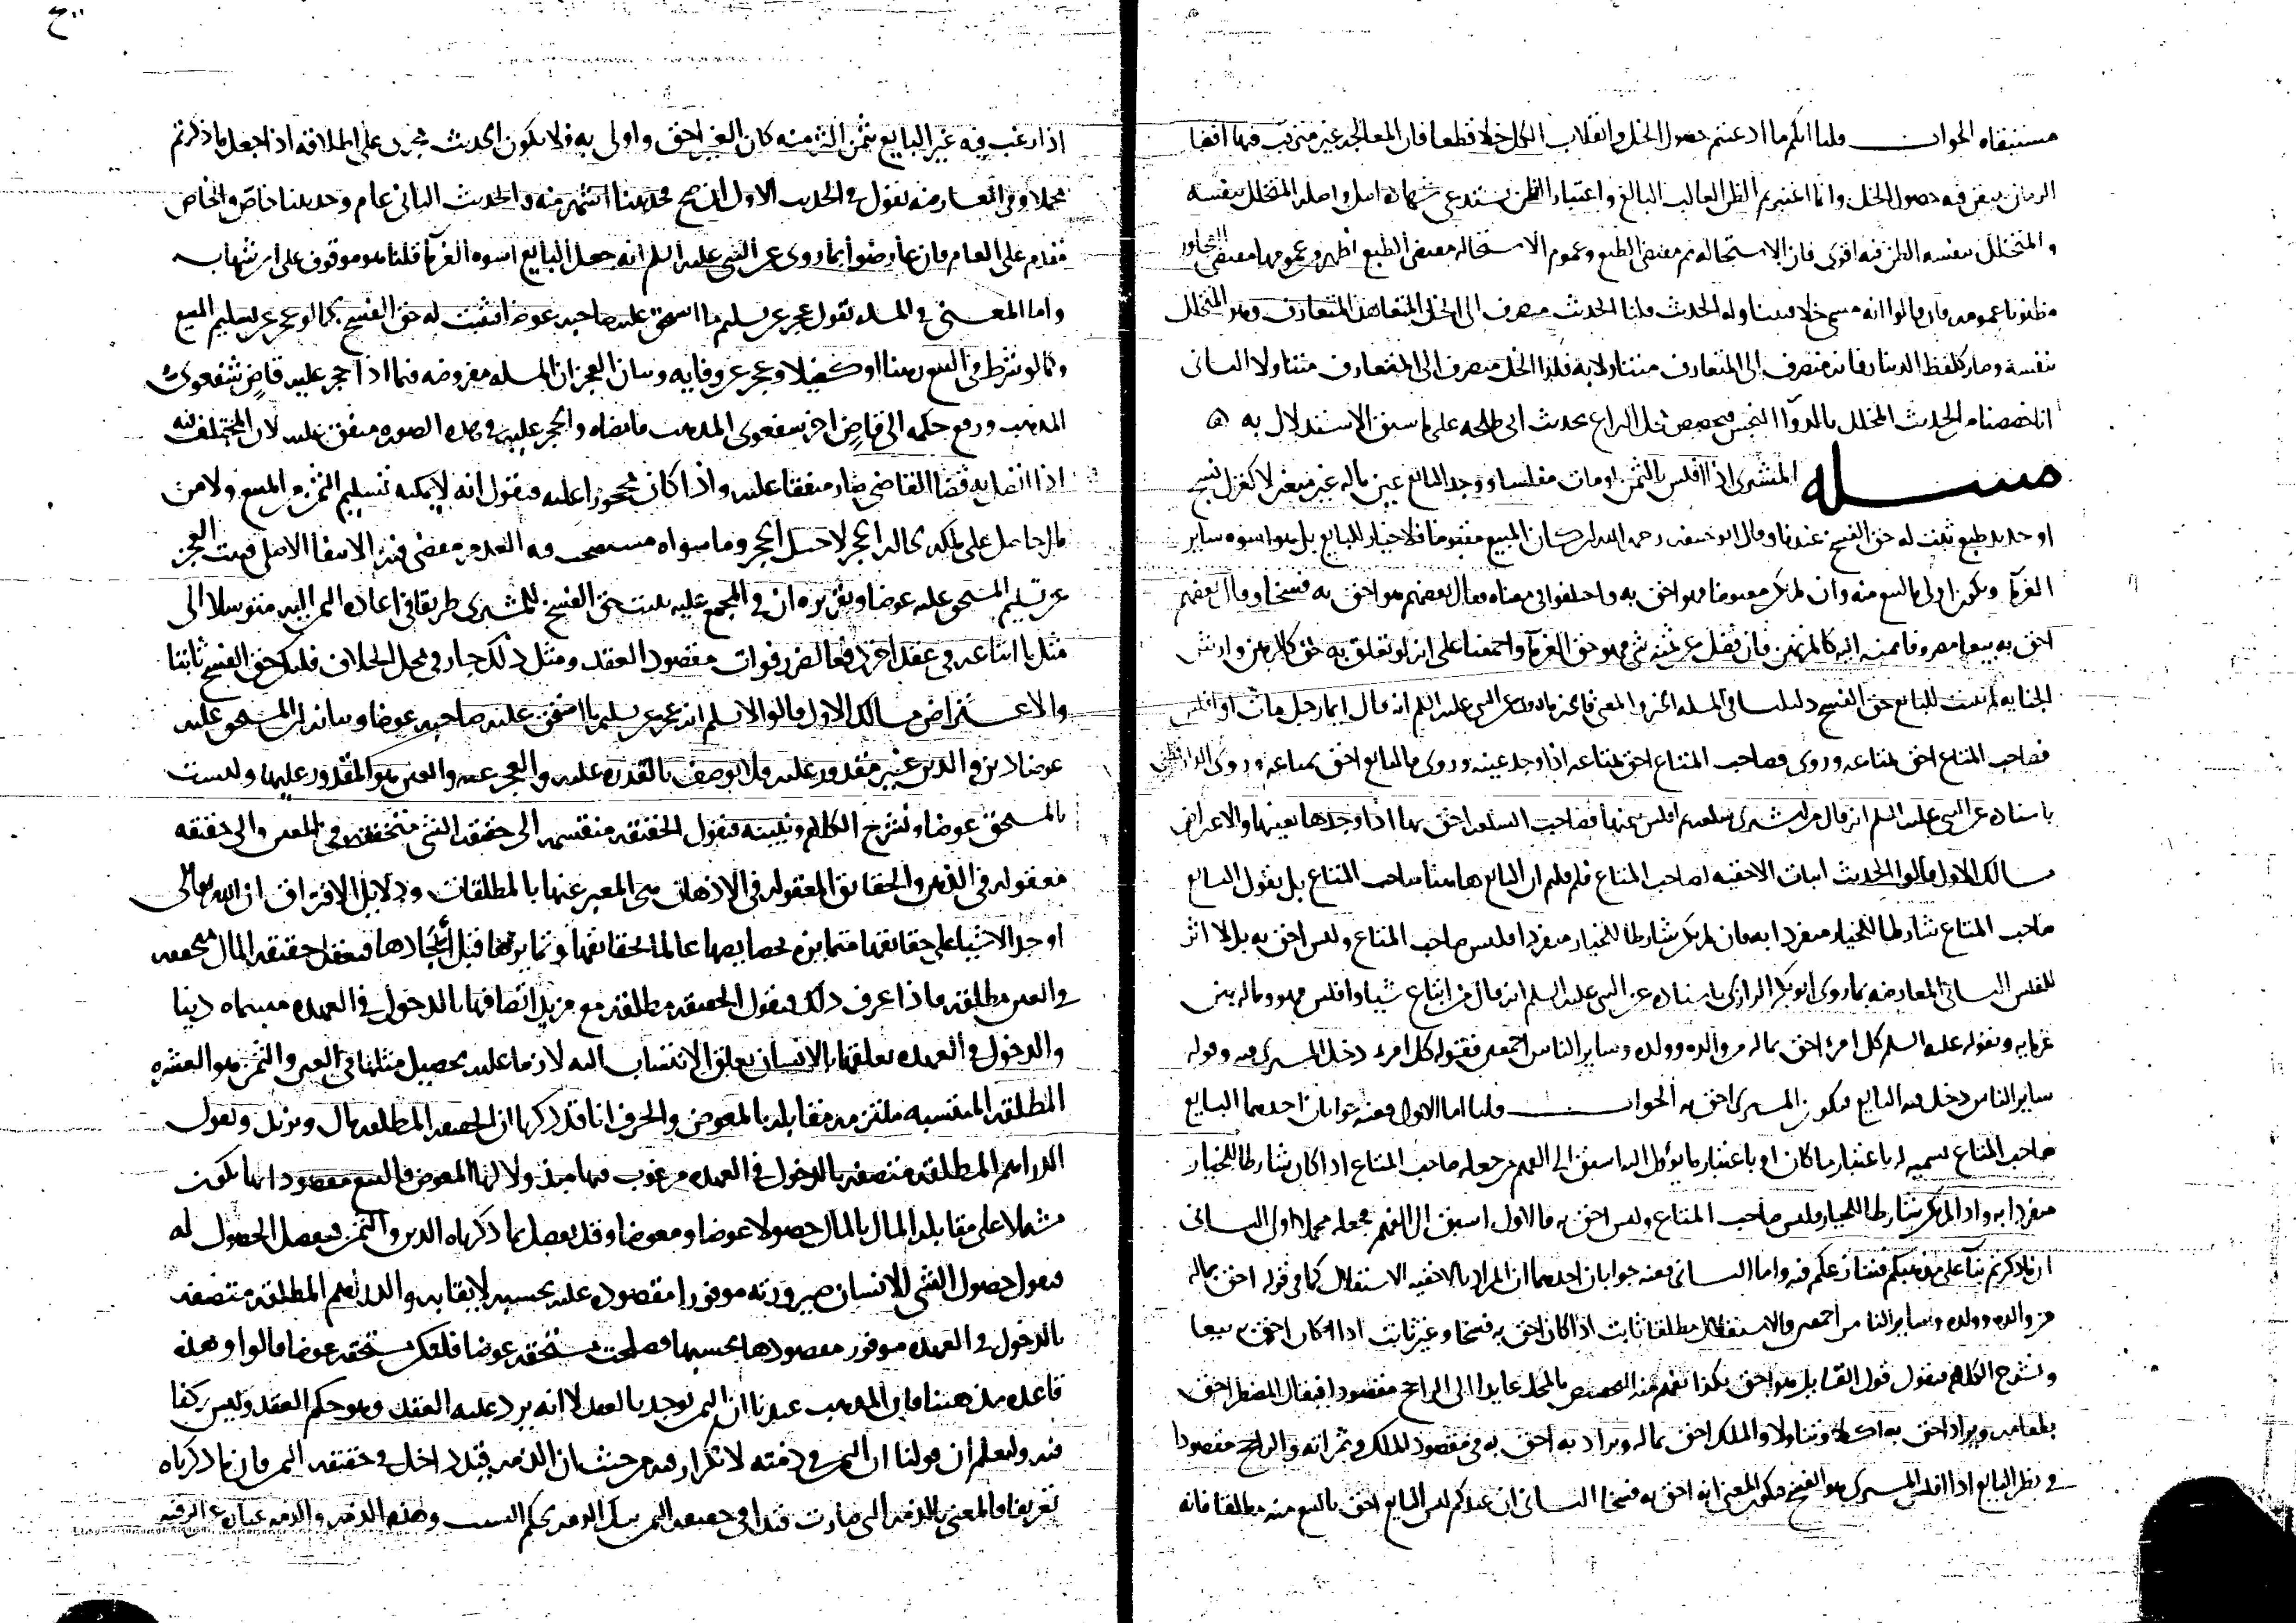 مستبقاه الجواب قلنا انكم ما ادعيتم حصول الخل وانقلاب الكل خلا قطعا فان المعالجه غير مترتب فيها اقصا
الزمان يتيقن فيه حصول الخل وانما اعتبرتم الظن الغالب البالغ واعتبار الظن يستدعي شهاده اصل واصله المتخلل بنفسه
والمتخلل بنفسه الظن فيه اقوى فان الاستحاله ثم مقتضى الطبع وعموم الاستحاله مقتضى الطبع اظهر وعمومها مقتضى
مظنونا عمومه فان قالوا انه مسمى خلا فيتناوله الحديث قلنا الحديث منصرف الى الخل المتفاهل المتعارف وهو المتخلل
بنفسه وصار كلفظ الدينار فانه منصرف الى المتعارف متناولا به فكذا الخل منصرف الى المتعارف متناولا الثاني
انا خصصنا الحديث المخلل بالدوآ النجس فيخصص محل النزاع بحديث ابي طلحه على ما سبق الاستدلال به
مسله المشترى اذا افلس بالثمن او مات مفلسا ووجد البائع عين ماله غير متغير لا كغزل نسج
او حديد طبع ثبت له حق الفسخ عندنا وقال ابو حنيفه رحمه الله ان كان المبيع مقبوضا فلا خيار للبايع بل هو اسوه ساير
الغرمآ ويكون اولى بالبيع منه وان لم يكن مقبوضا فهو احق به واختلفوا في معناه فقال بعضهم هو احق به فسخا وقال بعضهم
احق به بيعا مصروفا ثمنه اليه كالمرتهن فان فضل عن ثمنه شي فهو حق الغرمآ واجمعنا على انه لو تعلق به حق كالرهن وارش
الجنايه لم يثبت للبايع حق الفسخ دليلنا في المسله الخبر والمعنى فالخبر ما روي عن النبي عليه السلم انه قال ايما رجل مات او افلس
فصاحب المتاع احق بمتاعه وروى فصاحب المتاع احق بمتاعه اذا وجد عينه وروى فالبايع احق بمتاعه وروى الدارقطني
باسناده عن النبي عليه السلم انه قال من اشترى سلعه ثم افلس بثمنها فصاحب السلعه احق بها اذا وجدها بعينها والاعتراض
مسالك الاول قالوا الحديث اثبات الاحقيه لصاحب المتاع فلم قلتم ان البايع هاهنا صاحب المتاع بل نقول البايع
صاحب المتاع شارطا للخيار منفردا به فان لم يكن شارطا للخيار منفردا فليس صاحب المتاع وليس احق به بل لا اثر
للفلس الثاني المعارضه بما روى ابو بكر الرازي باسناده عن النبي عليه السلم انه قال من ابتاع شيا وافلس فهو وماله بين
غرمايه وبقوله عليه السلم كل امرء احق بماله من والده وولده وساير الناس اجمعين فقوله كل امرء دخل المشترى فيه وقوله
ساير الناس دخل فيه البايع فيكون المشترى احق به الجواب قلنا اما الاول فعنه جوابان احدهما البايع
صاحب المتاع تسميه له باعتبار ما كان او باعتبار ما يؤول اليه اسبق الى الفهم من جعله صاحب المتاع اذا كان شارطا للخيار
منفردا به واذا لم يكن شارطا للخيار فليس صاحب المتاع وليس احق به فالاول اسبق الى الفهم فجعله محملا اولى الثاني
ان ما ذكرتم بنآ على مذهبكم فننازعكم فيه واما الثاني فعنه جوابان احدهما ان المراد بالاحقيه الاستقلال كما في قوله احق بماله
من والده وولده وساير الناس اجمعين والاستقلال مطلقا ثابت اذا كان احق به فسخا وغير ثابت اذا كان احق به بيعا
ونشرح الكلام فنقول قول القايل هو احق بكذا يفهم منه التخصيص بالمحل عايدا الى الراجح مقصودا فيقال المضطر احق
بطعامه ويراد احق به اكلا وتناولا والملك احق بماله ويراد به احق به في مقصود الملك وثمراته والراجح مقصودا
في نظر البايع اذا افلس المشترى هو الفسخ فيكون المعنى انه احق به فسخا الثاني ان عندكم ليس البايع احق بالبيع منه مطلقا فانه
اذا رغب فيه غير البايع بثمن اكثر منه كان الغير احق واولى به فلا يكون الحديث مجرى على اطلاقه اذا جعل ما ذكرتم
محملا وفي المعارضه نقول في الحديث الاول ان صح فحديثنا اشهر منه والحديث الثاني عام وحديثنا خاص والخاص
مقدم على العام فان عارضوا بما روى عن النبي عليه السلم انه جعل البايع اسوه الغرمآ قلنا هو موقوف على ابن شهاب
واما المعنى في المسله نقول عجز عن تسليم ما استحق عليه صاحبه عوضا فثبت له حق الفسخ كما لو عجز عن تسليم المبيع
وكما لو شرط في البيع رهنا او كفيلا وعجز عن وفايه وبيان العجز ان المسله مفروضه فيما اذا حجر عليه قاض شفعوى
المذهب ورفع حكمه الى قاض اخر شفعوى المذهب فامضاه والحجر عليه في هذه الصوره متفق عليه لان المختلف فيه
اذا اتصل به قضا القاضي صار متفقا عليه واذا كان محجورا عليه فنقول انه لا يمكنه تسليم الثمن من المبيع ولا من
مال حاصل على ملكه حاله الحجر لاجل الحجر وما سواه مستصحب فيه العدم ومقضى فيه الانتفا الاصلي فثبت العجز
عن تسليم المستحق عليه عوضا وتقريره ان في المجمع عليه يثبت حق الفسخ للمشترى طريقا في اعاده الثمن اليه متوسلا الى
مثل ما ابتاعه في عقد اخر دفعا لضرر فوات مقصود العقد ومثل ذلك جار في محل الخلاف فليكن حق الفسخ ثابتا
والاعتراض مسالك الاول قالوا لا نسلم انه عجز عن تسليم ما استحق عليه صاحبه عوضا وبيانه ان المستحق عليه
عوضا دين والدين غير مقدور عليه فلا يوصف بالقدره عليه والعجز عنه والعين هو المقدور عليها وليست
بالمستحق عوضا ونشرح الكلام ونبينه فنقول الحقيقه منقسمه الى حقيقه الشي متحققه في العين والى حقيقه
معقوله في الذهن والحقايق المعقوله في الاذهان هي المعبر عنها بالمطلقات ودلايل الافتراق ان الله تعالى
اوجد الاشيا على حقايقها متمايزه بخصايصها عالما بحقايقها وتمايزها قبل ايجادها فيعقل حقيقه المال متحققه
في العين مطلقه فاذا عرف ذلك فنقول الحقيقه مطلقه مع مزيد اتصافها بالدخول في العهده مسماه دينا
والدخول في العهده تعلقها بالانسان تعلق الانتساب اليه لازما عليه تحصيل مثلها في العين والثمن هو العشره
المطلقه المنتسبه ملتزمه مقابله بالمعوض والحرف انا قد ذكرنا ان الحقيقه المطلقه مال ونزيد ونقول
الدراهم المطلقه متصفه بالدخول في العهده مرغوب فيها مبذولا لها المعوض فالبيع مقصودا بها يكون
مشتملا على مقابله المال بالمال حصولا عوضا ومعوضا وقد تفصل بما ذكرناه الدين والثمن فنفصل الحصول له
فنقول حصول الشي للانسان صيرورته موفورا مقصوده عليه بحسبه لايقا به والدراهم المطلقه متصفه
بالدخول في العهده موفور مقصودها بحسبها فصلحت مستحقه عوضا فلتكن مستحقه عوضا قالوا وهذه
قاعده مذهبنا فان المذهب عندنا ان الثمن يوجد بالعقد لا انه يرد عليه العقد وهو حكم العقد وليس ركنا
فيه وليعلم ان قولنا ان الثمن في ذمته لا تكرار فيه من حيث ان الذمه قيد داخل في حقيقه الثمن فان ما ذكرناه
تعريفا فالمعنى بالذمه التي صارت قيدا في حقيقه الثمن وهذه الذمه والذمه عباره عن الرقبه